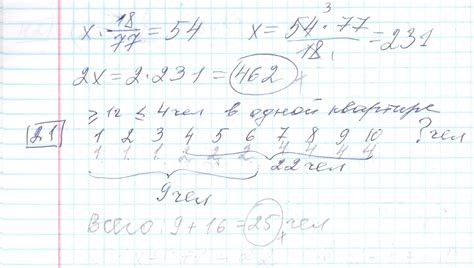 x · 18/77 = 54    x = 54 · 77 / 18 = 231
2x = 2 · 231 = 462
≤ 4 чел в одной квартире
21
1 2 3 4 5 6 7 8 9 10 ? чел
1 1 1 2 2 2 4 4 4 4
9 чел 22 чел
Всего: 9 + 16 = 25 чел